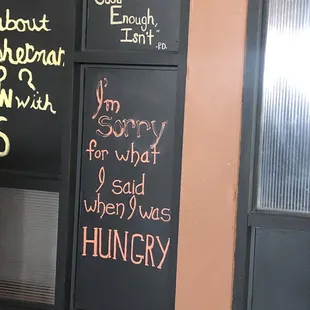 about
? ?
with
Enough,
Isn't".
I'm
sorry
for what
I said
when I was
HUNGRY